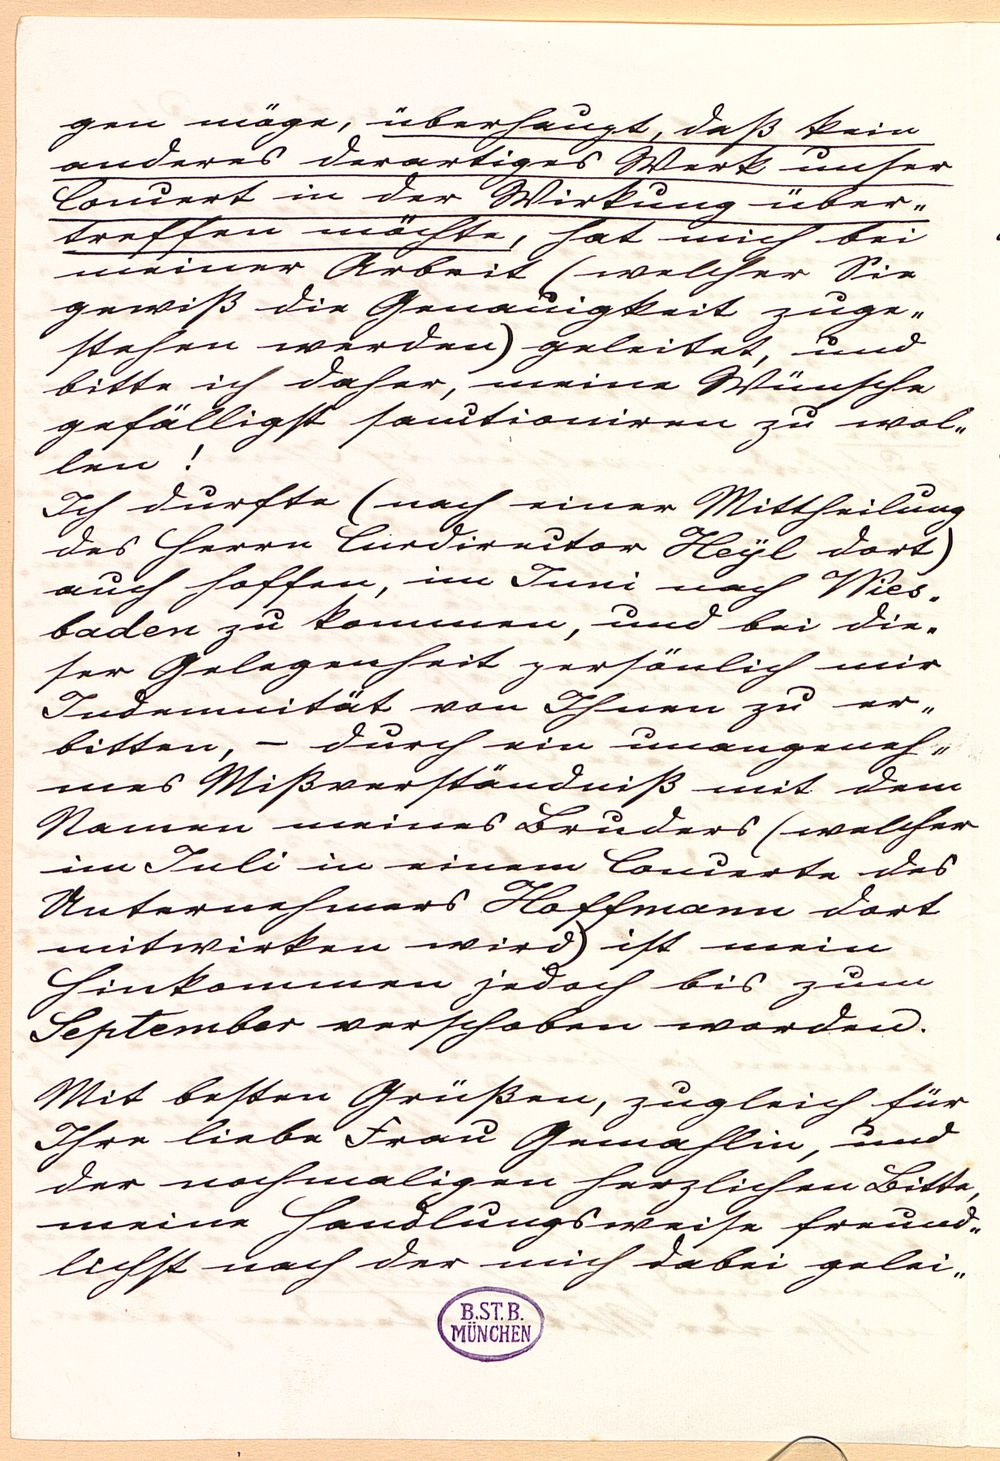 gen möge, überhaupt, daß kein
anderes derartiges Werk unser
Concert in der Wirkung über-
treffen möchte, hat mich bei
meiner Arbeit (welcher Sie
gewiß die Genauigkeit zuge-
stehen werden) geleitet, und
bitte ich daher, meine Wünsche
gefälligst sanctioniren zu wol-
len!
Ich durfte (nach einer Mittheilung
des Herrn Curdirector Heÿl dort)
auch hoffen, im Juni nach Wies-
baden zu kommen, und bei die-
ser Gelegenheit persönlich mir
Indemnität von Ihnen zu er-
bitten, – durch ein unangeneh-
mes Mißverständniß mit dem
Namen meines Bruders (welcher
im Juli in einem Concerte des
Unternehmers Hoffmann dort
mitwirken wird) ist mein
Hinkommen jedoch bis zum
September verschoben worden.
Mit besten Grüßen, zugleich für
Ihre liebe Frau Gemahlin, und
der nochmaligen herzlichen Bitte,
meine Handlungsweise freund-
lichst nach der mich dabei gelei-
B.ST.B.
MÜNCHEN